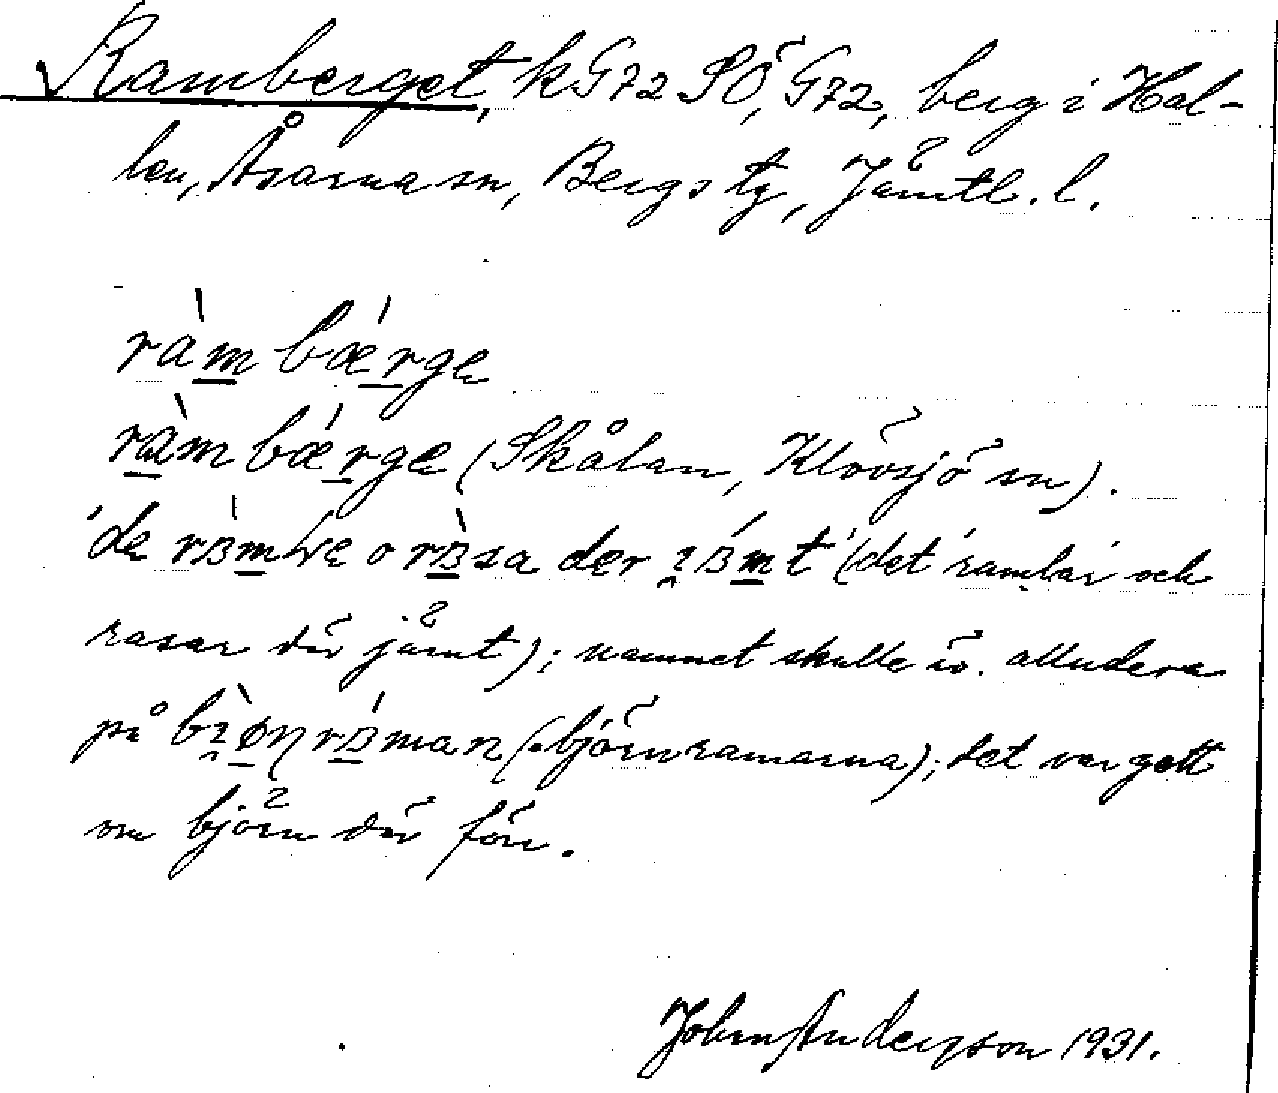 Ramberget, kG72 SÖ, G72, berg i Hal-
len, Åsarna sn, Bergs tg, Jämtl. l.
ràm bǽrge
ràm bǽrge (Skålan, Klövsjö sn).
'de rʙ̀m o rʙ̀sa der ʙ́mt' (det 'ramlar och
rasar där jämt); namnet skulle äv. alludera
på (björnramarna); det var gott
om björn där förr.
John Anderson 1931.